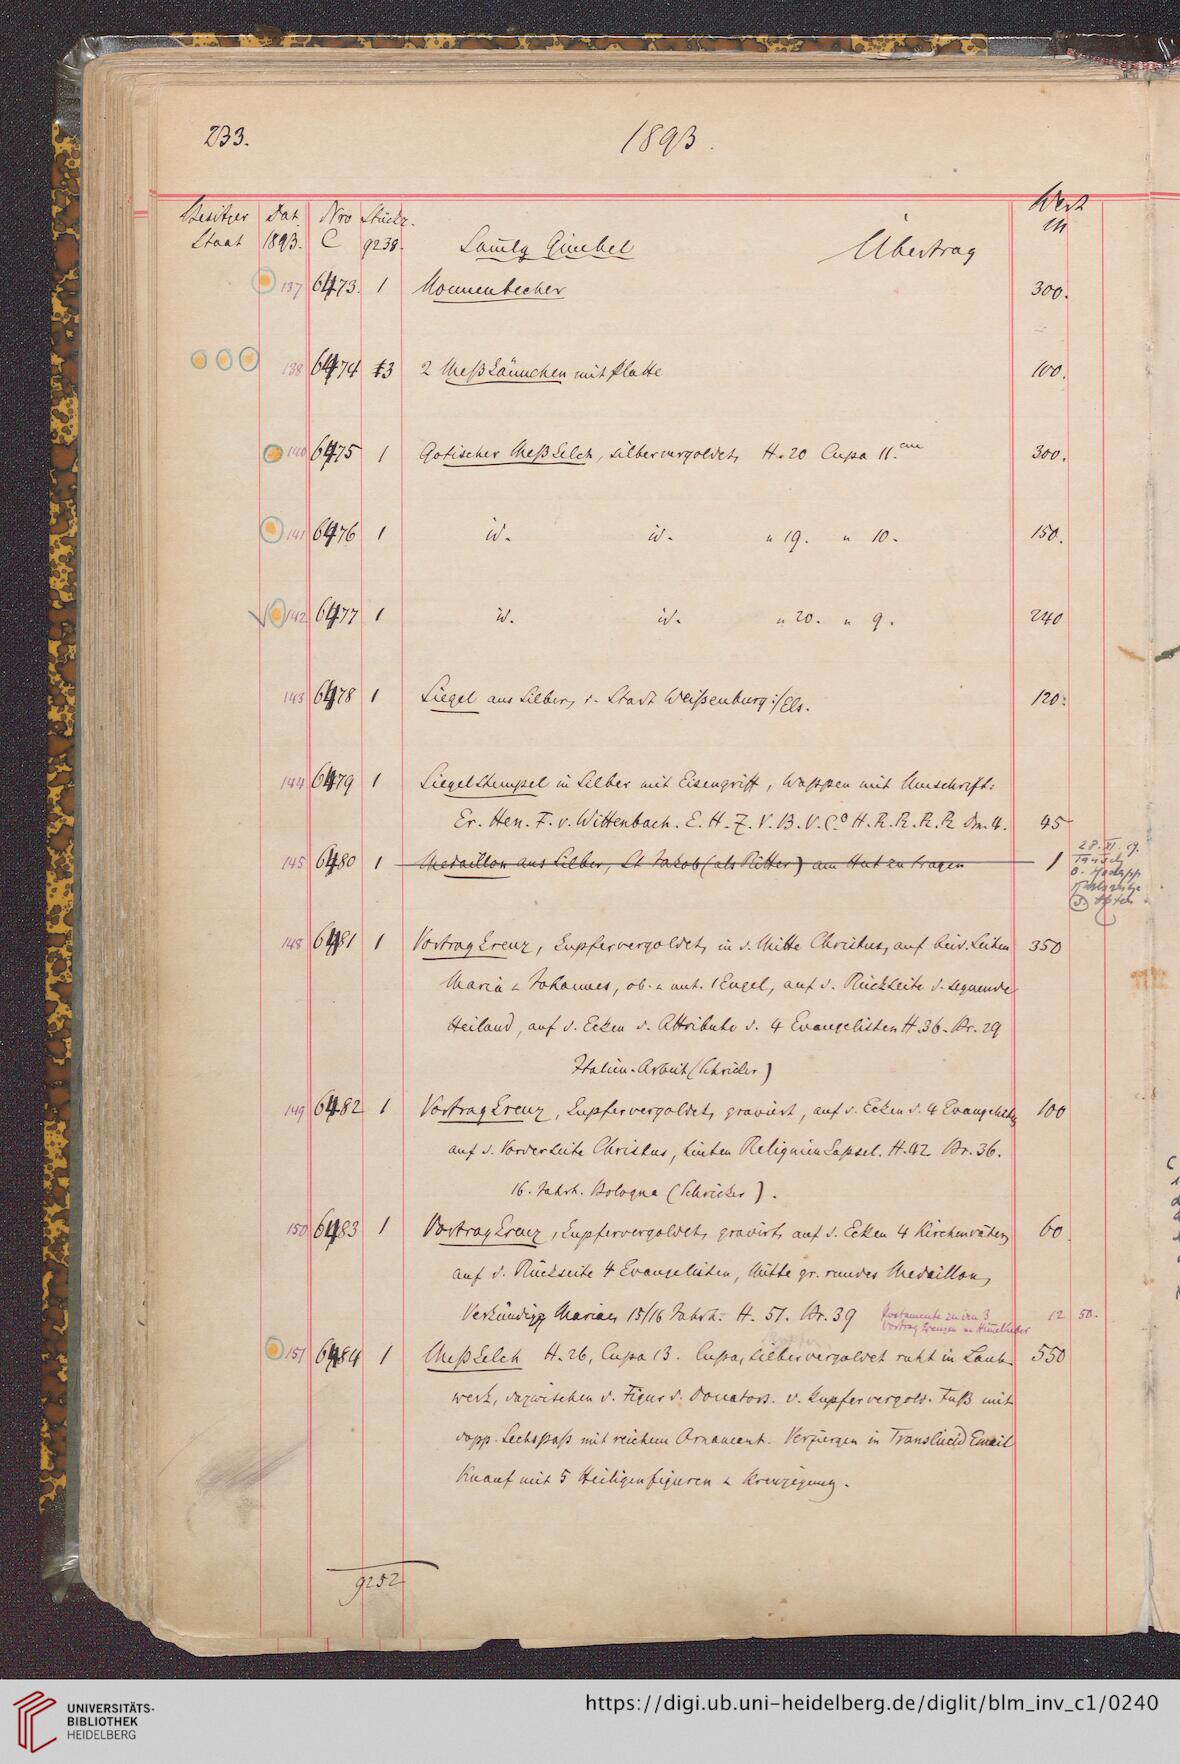 233.
1893.
Besitzer Dat. Nro Stückz. Wert
Staat 1893. C 9238. Samlg Gimbel Übertrag M
137 6473. 1 Nonnenbecher 300.
138 6474 3 2 Meßkännchen mit Platte 100.
140 6475 1 Gotischer Meßkelch, silbervergoldet, H. 20 Cupa 11. cm 300.
141 6476 1 id. id. " 19. " 10. 150.
142 6477 1 id. id. " 20. " 9. 240
143 6478 1 Siegel aus Silber, d. Stadt Weißenburg i/Els. 120.
144 6479 1 Siegelstempel in Silber mit Eisengriff, Wappen mit Umschrift:
Er. Hen. F. v. Wittenbach. E. H. Z. V. B. V. C. H. R. R. R. R. Dm. 4. 45
145 6480 1 Medaillon aus Silber, St Jakob (als Ritter) am Hut zu tragen 1
28. XI. 9.
Tausch
148 6481 1 Vortragkreuz, kupfervergoldet, in d. Mitte Christus, auf beid. Seiten 350
Maria u Johannes, ob. u unt. 1 Engel, auf d. Rückseite d. segnende
Heiland, auf d. Ecken d. Attribute d. 4 Evangelisten H. 36. Br. 29
Italien. Arbeit (Schricker)
149 6482 1 Vortragkreuz, kupfervergoldet, graviert, auf d. Ecken d. 4 Evangelisten 100
auf d. Vorderseite Christus, hinten Reliquienkapsel. H. 42 Br. 36.
16. Jahrh. Bologna (Schricker).
150 6483 1 Vortragkreuz, kupfervergoldet, gravirt, auf d. Ecken 4 Kirchenväter, 60
auf d. Rückseite 4 Evangelisten, Mitte gr. rundes Medaillon,
Verkündigg Mariae, 15/16 Jahrh. H. 51. Br. 39 Postamente zu den 3 12 50.
Vortragkreuzen
151 6484 1 Meßkelch H. 26, Cupa 13. Cupa, silbervergoldet ruht in Laub- 550
werk, dazwischen d. Figur d. Donators. d. kupfervergold. Fuß mit
dopp. Sechspaß mit reichem Ornament. Verziergen in Translucid Email
Knauf mit 5 Heiligenfiguren u Kreuzigung.
9252
UNIVERSITÄTS-
BIBLIOTHEK
HEIDELBERG
https://digi.ub.uni-heidelberg.de/diglit/blm_inv_c1/0240